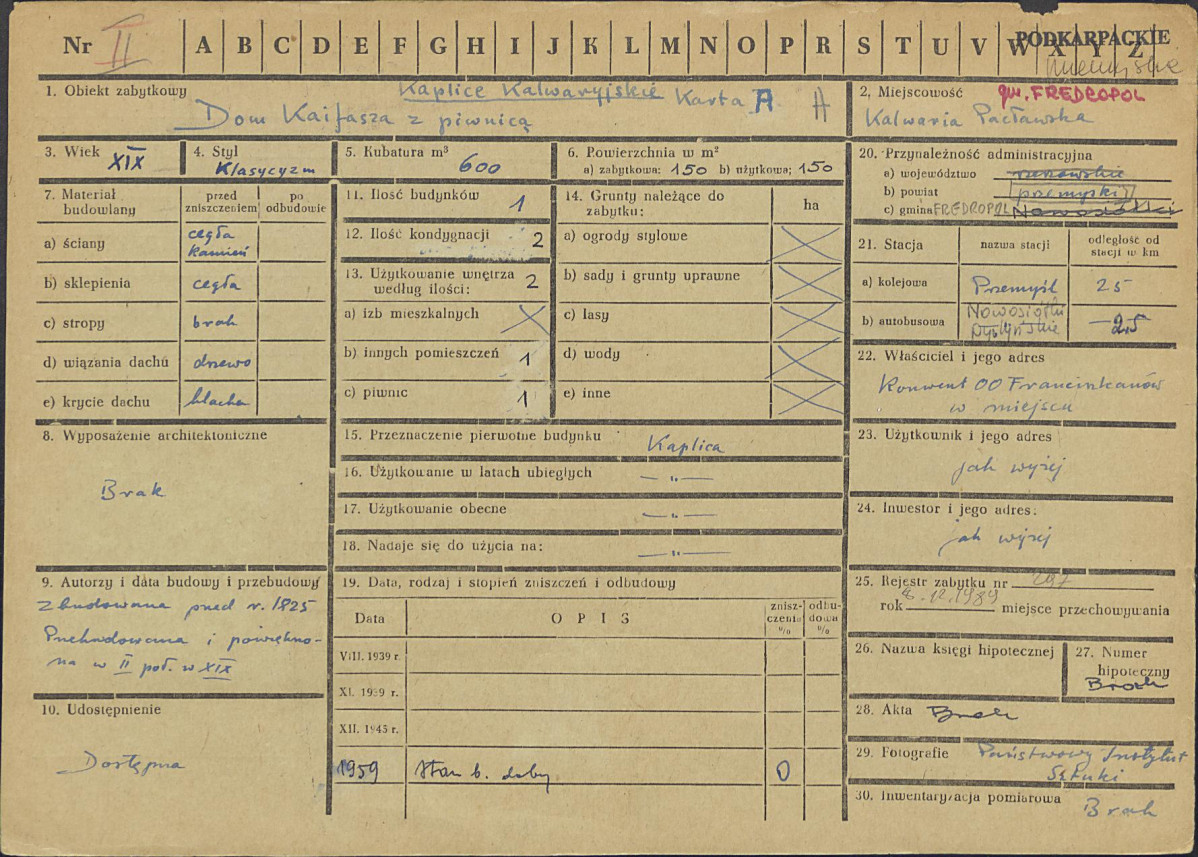 Nr II A B C D E F G H I J K L M N O P R S T U V W X Y Z
PODKARPACKIE
1. Obiekt zabytkowy Kaplice Kalwaryjskie Karta A A
Dom Kaifasza z piwnicą
2. Miejscowość gm. FREDROPOL
Kalwaria Pacławska
3. Wiek XIX
4. Styl Klasycyzm
5. Kubatura m³ 600
6. Powierzchnia w m²
a) zabytkowa: 150 b) użytkowa: 150
7. Materiał budowlany
przed zniszczeniem
po odbudowie
a) ściany cegła kamień
b) sklepienia cegła
c) stropy brak
d) wiązania dachu drzewo
e) krycie dachu blacha
8. Wyposażenie architektoniczne
Brak
9. Autorzy i data budowy i przebudowy
Zbudowana przed r. 1825
Przebudowana i powiększo-
na w II poł. w XIX
10. Udostępnienie
Dostępna
11. Ilość budynków 1
12. Ilość kondygnacji 2
13. Użytkowanie wnętrza
według ilości: 2
a) izb mieszkalnych
b) innych pomieszczeń 1
c) piwnic 1
14. Grunty należące do
zabytku: ha
a) ogrody stylowe
b) sady i grunty uprawne
c) lasy
d) wody
e) inne
15. Przeznaczenie pierwotne budynku Kaplica
16. Użytkowanie w latach ubiegłych — " —
17. Użytkowanie obecne — " —
18. Nadaje się do użycia na: — " —
19. Data, rodzaj i stopień zniszczeń i odbudowy
Data OPIS znisz-czenia % odbu-dowa %
VIII. 1939 r.
XI. 1939 r.
XII. 1945 r.
1959 Stan b. dobry 0
20. Przynależność administracyjna
a) województwo rzeszowskie
b) powiat przemyski
c) gmina FREDROPOL Nowosiółki
21. Stacja nazwa stacji odległość od
stacji w km
a) kolejowa Przemyśl 25
b) autobusowa Nowosiółki
Dydyńskie 25
22. Właściciel i jego adres
Konwent OO Franciszkanów
w miejscu
23. Użytkownik i jego adres
jak wyżej
24. Inwestor i jego adres:
jak wyżej
25. Rejestr zabytku nr 297
rok 8.12.1989 miejsce przechowywania
26. Nazwa księgi hipotecznej
27. Numer
hipoteczny
Brak
28. Akta Brak
29. Fotografie Państwowy Instytut
Sztuki
30. Inwentaryzacja pomiarowa Brak